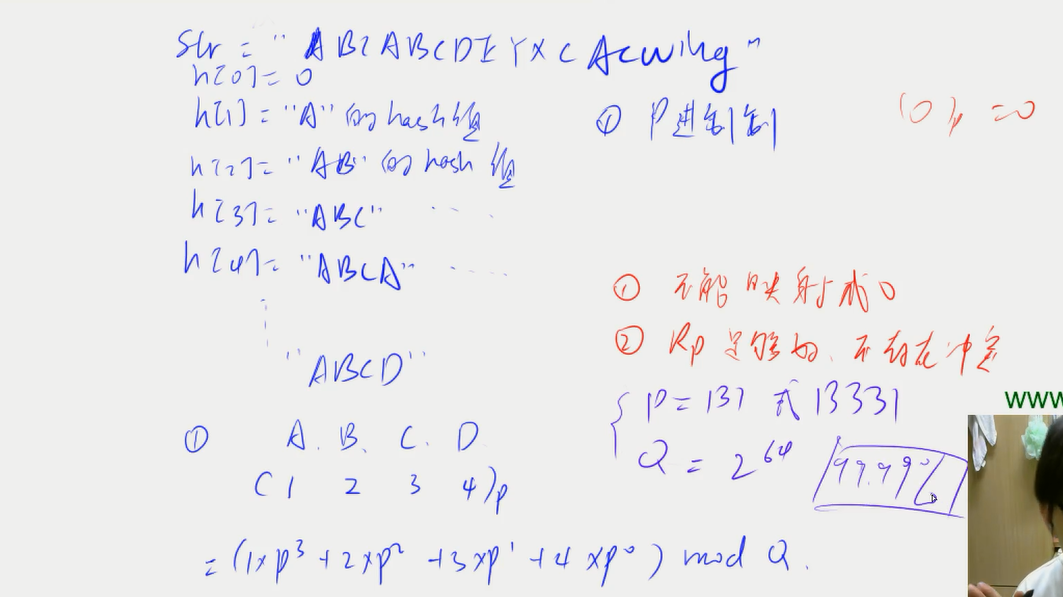 Str = "ABCABCDEYXCAcwing"
h[0] = 0
h[1] = "A" 的 hash值
h[2] = "AB" 的 hash 值
h[3] = "ABC" ......
h[4] = "ABCA" ......
"ABCD"
① A. B. C. D
(1 2 3 4)p
= (1×p³ + 2×p² + 3×p¹ + 4×p⁰) mod Q.
① P进制
(0)p = 0
① 不能映射成0
② Rp足够好, 不存在冲突
{ P = 131 或 13331
Q = 2⁶⁴ 99.99%
www